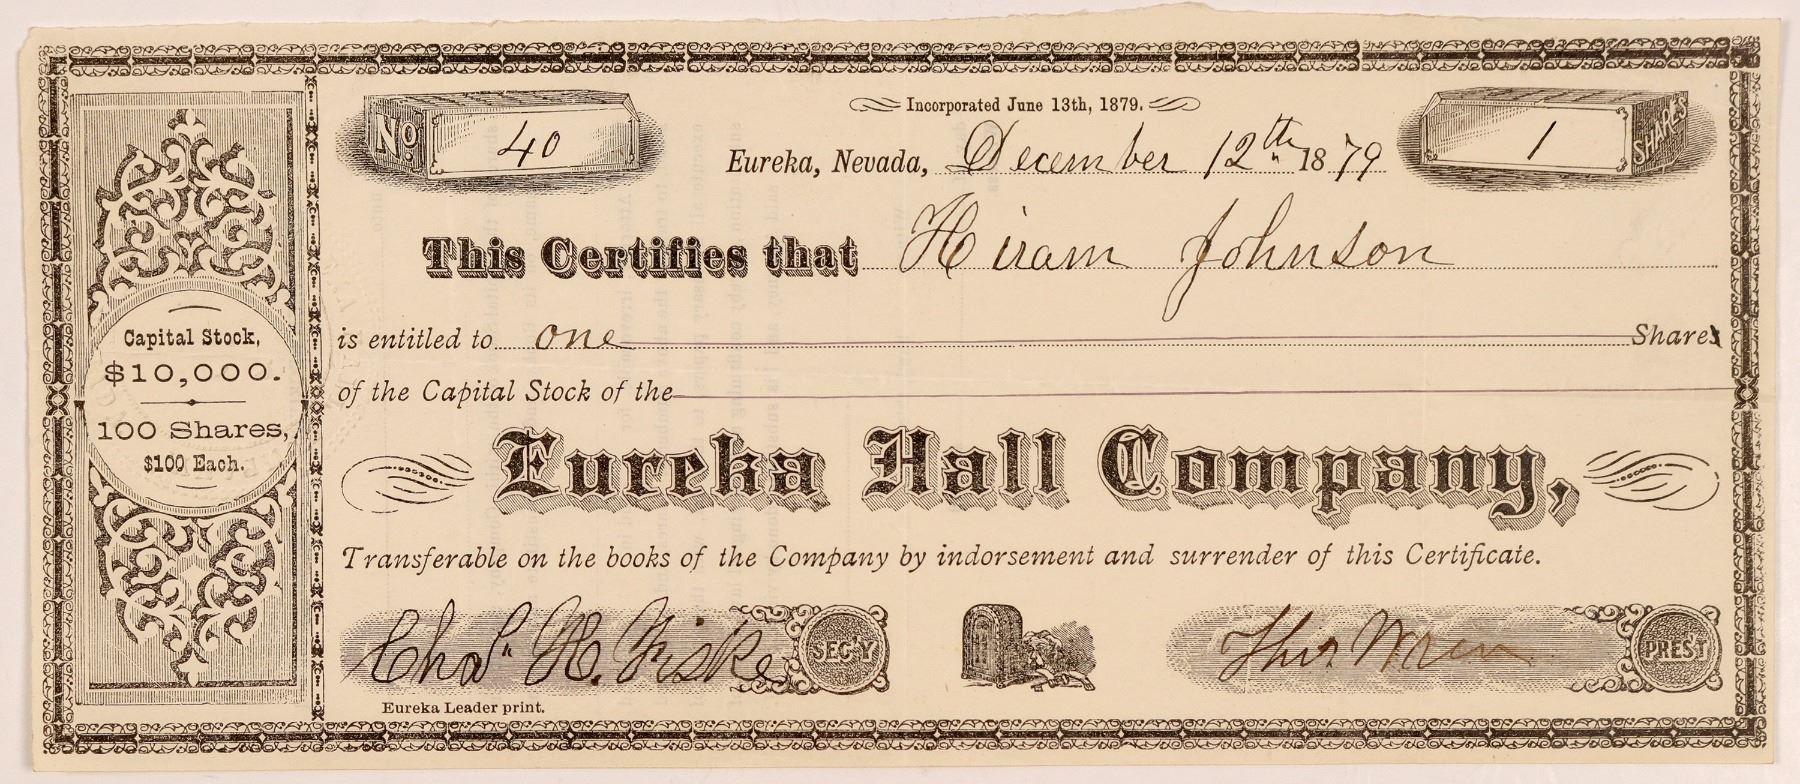 Incorporated June 13th, 1879.
No. 40
Eureka, Nevada, December 12th 1879
1 SHARES
This Certifies that Hiram Johnson
is entitled to one Shares
of the Capital Stock of the
Eureka Hall Company,
Transferable on the books of the Company by indorsement and surrender of this Certificate.
Capital Stock,
$10,000.
100 Shares,
$100 Each.
Chas. H. Fiske SEC'Y
Thos. Wren PRES'T
Eureka Leader print.